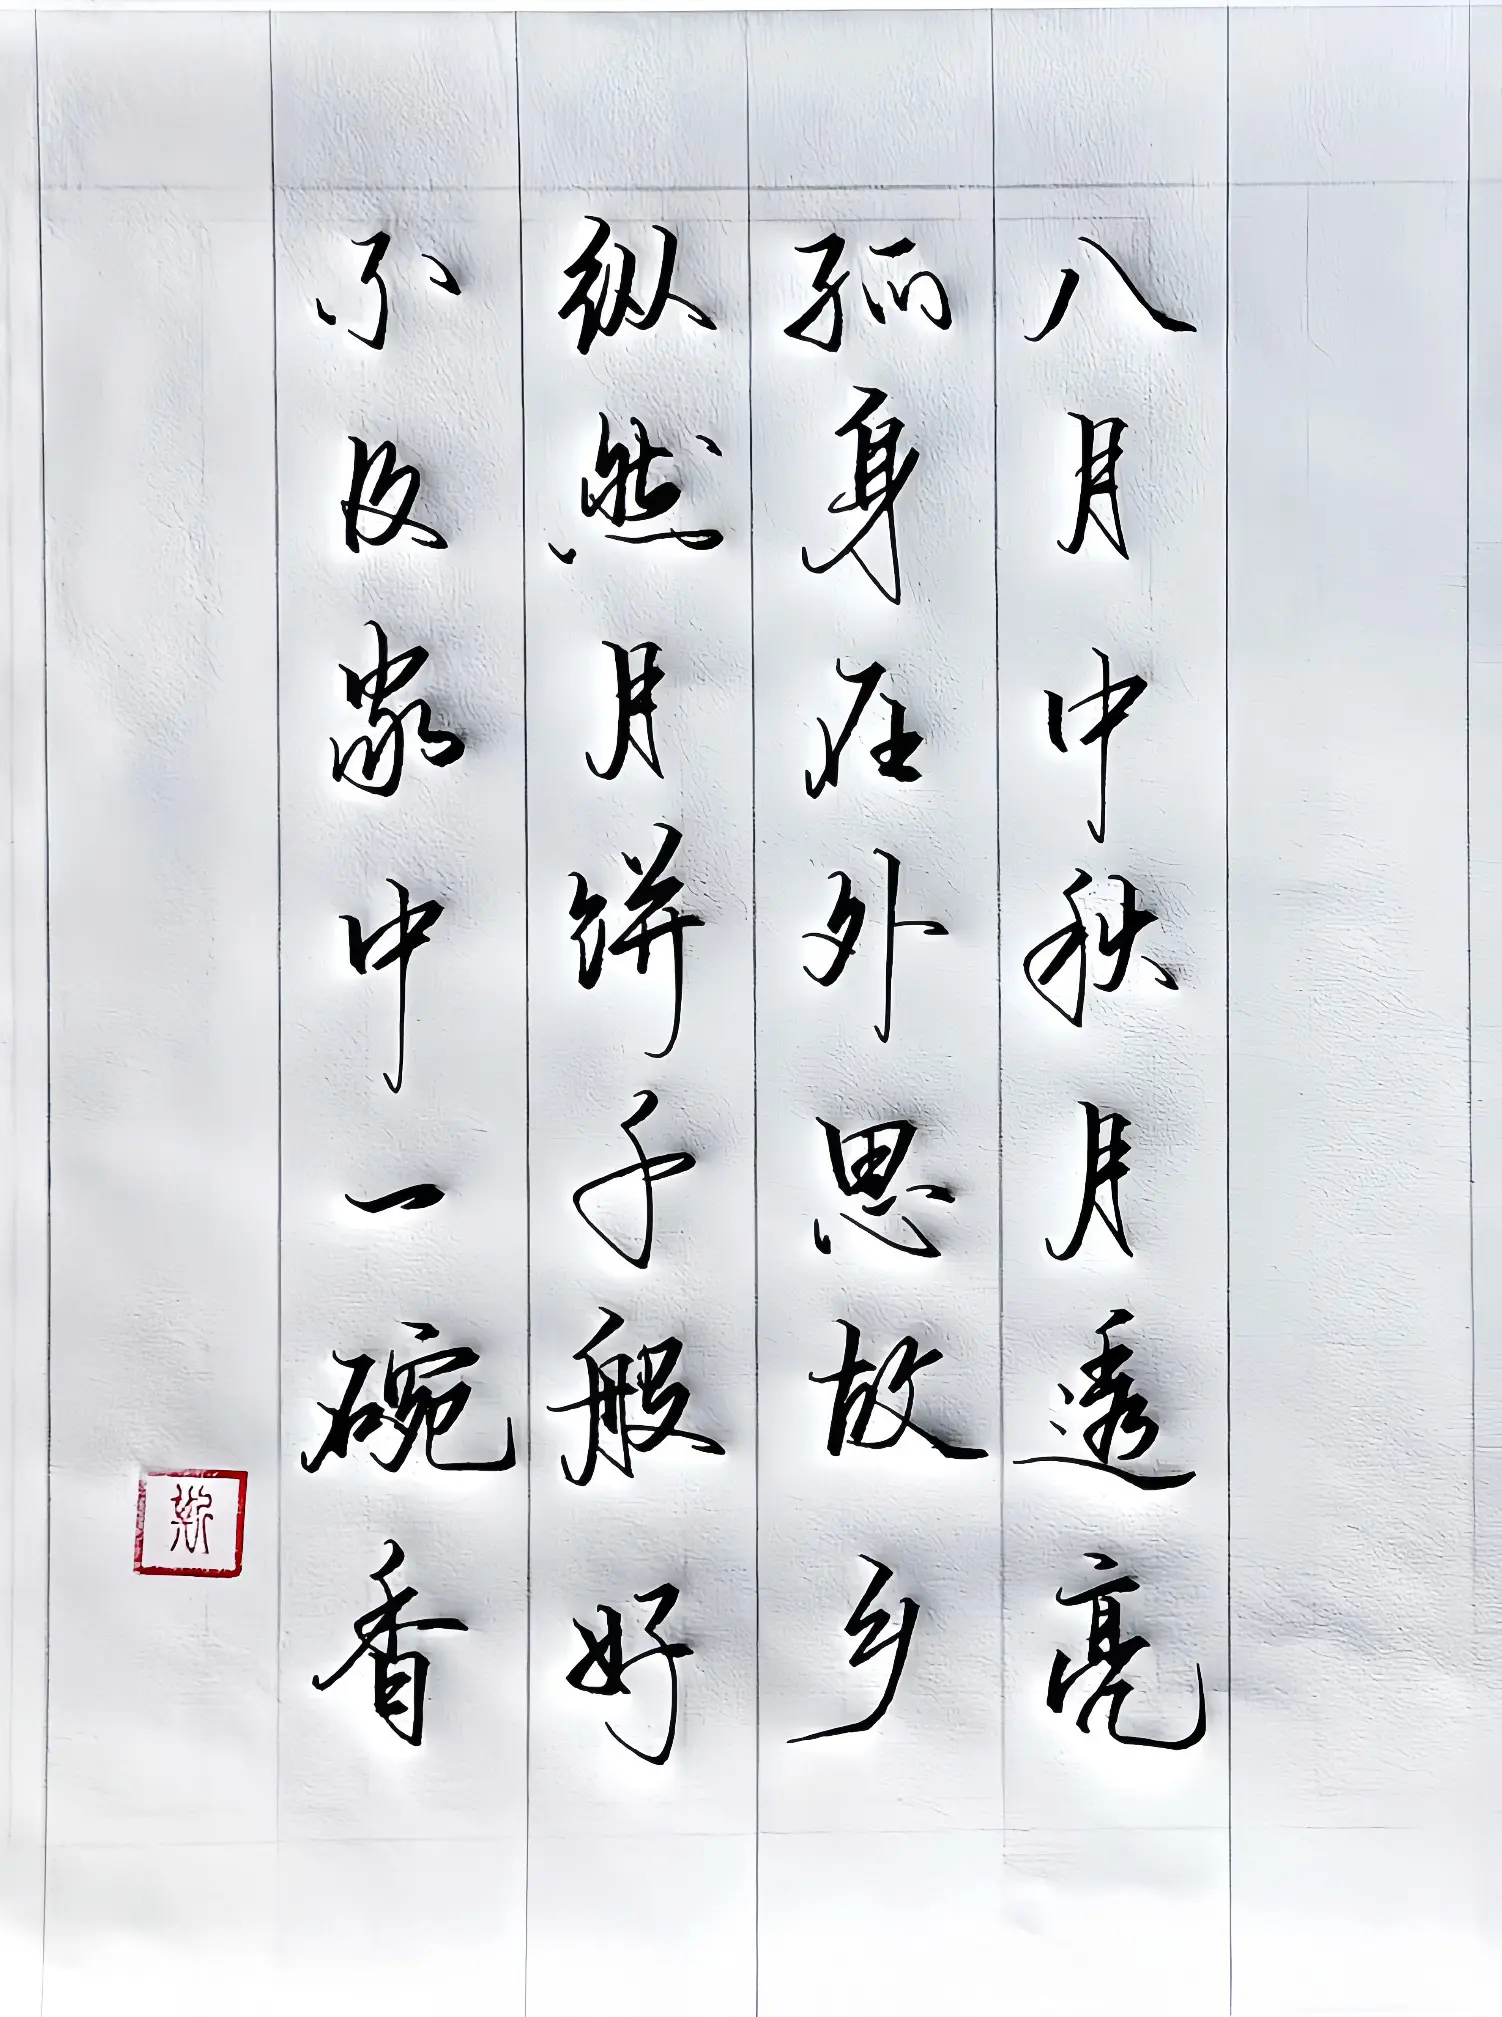 八月中秋月透亮
孤身在外思故乡
纵然月饼千般好
不及家中一碗香